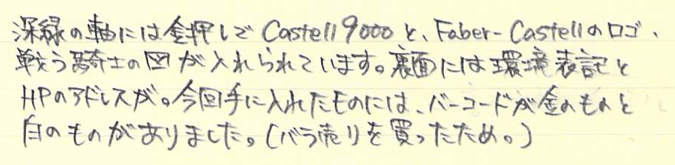 深緑の軸には金押しでCastell9000と、Faber-Castellのロゴ、
戦う騎士の図が入れられています。裏面には環境表記と
HPのアドレスが。今回手に入れたものには、バーコードが金のものと
白のものがありました。(バラ売りを買ったため。)